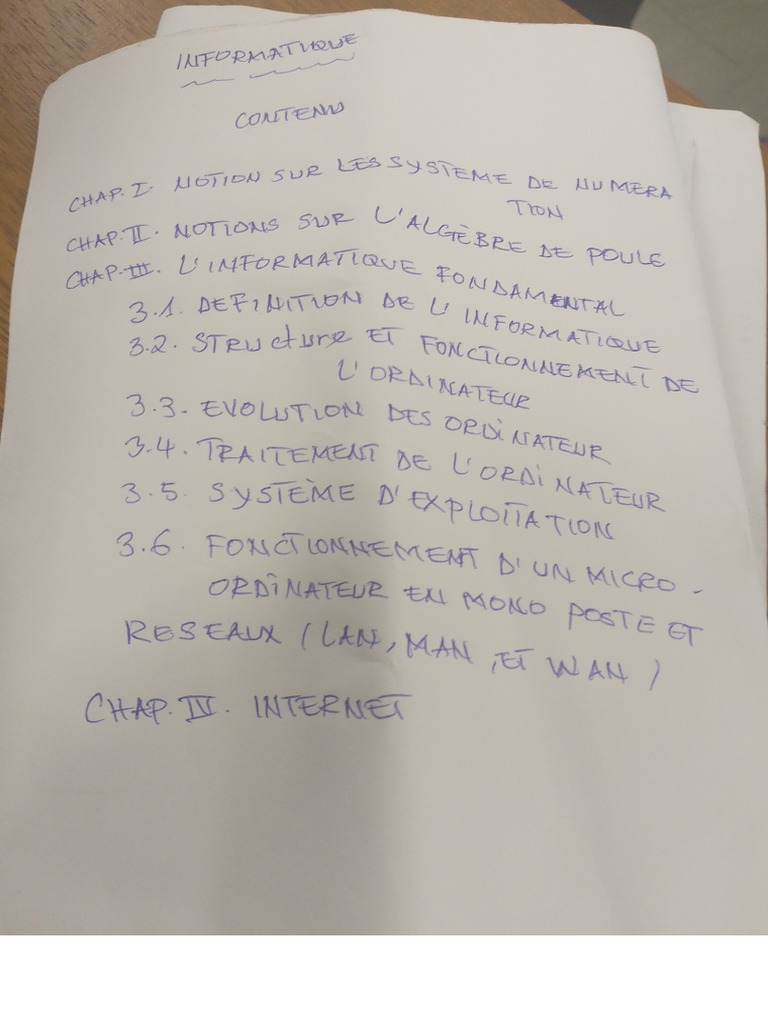 INFORMATIQUE
CONTENU
CHAP. I. NOTION SUR LES SYSTEME DE NUMERA
TION
CHAP. II. NOTIONS SUR L'ALGÈBRE DE POULE
CHAP. III. L'INFORMATIQUE FONDAMENTAL
3.1. DEFINITION DE L'INFORMATIQUE
3.2. STRUCTURE ET FONCTIONNEMENT DE
L'ORDINATEUR
3.3. EVOLUTION DES ORDINATEUR
3.4. TRAITEMENT DE L'ORDINATEUR
3.5. SYSTÈME D'EXPLOITATION
3.6. FONCTIONNEMENT D'UN MICRO-
ORDINATEUR EN MONO POSTE ET
RESEAUX (LAN, MAN, ET WAN)
CHAP. IV. INTERNET